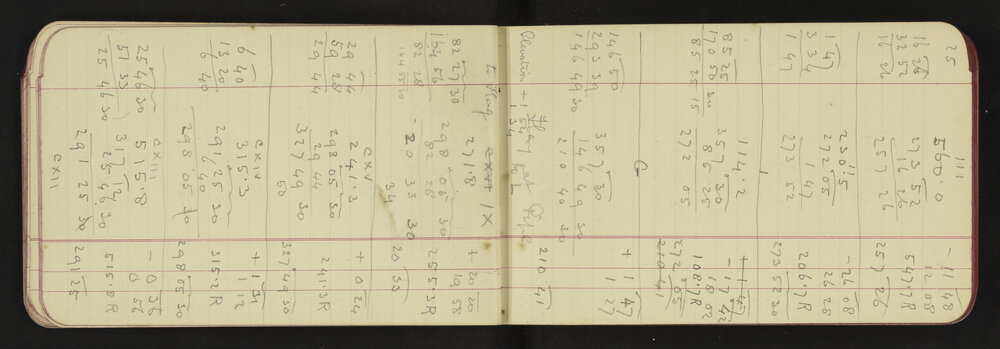 111
25 560.0 - 11 48
16 26 273 52 12 08
32 52 16 26 547.7R
16 26 257 26 257 26
230.5 - 26 08
1 47 272 05 26 28
3 34 1 47 206.7R
1 47 273 52 273 52 30
1
114.2 + 1 47
85 25 - 17 42
170 50 30 357 30 18 02
85 25 15 85 25 108.7R
272 05 272 05
210 41
G
146 50 + 1 47
293 39 357 30 1 27
146 49 30 146 49 30
210 40 30 210 41
Flag post Pipe
Elevation + 1 54
34
to Flag IX
271.8 + 20 20
82 27 30 19 58
164 56 298 05 30 255.3R
82 28 82 28
164 55 30 - 20 33 30 20 33
34
CXV
29 44 241.3 + 0 24
59 28 298 05 30
29 44 29 44 241.3R
327 49 30 327 49 30
50
CXIV + 1 31
6 40 315.3 1 12
13 20 291 25 30 315.2R
6 40 6 40
298 05 30 298 05 30
CXIII - 0 36
25 46 30 515.8 0 56
51 33 317 12
25 46 30 25 46 30 515.8R
291 25 30 291 25
CXII